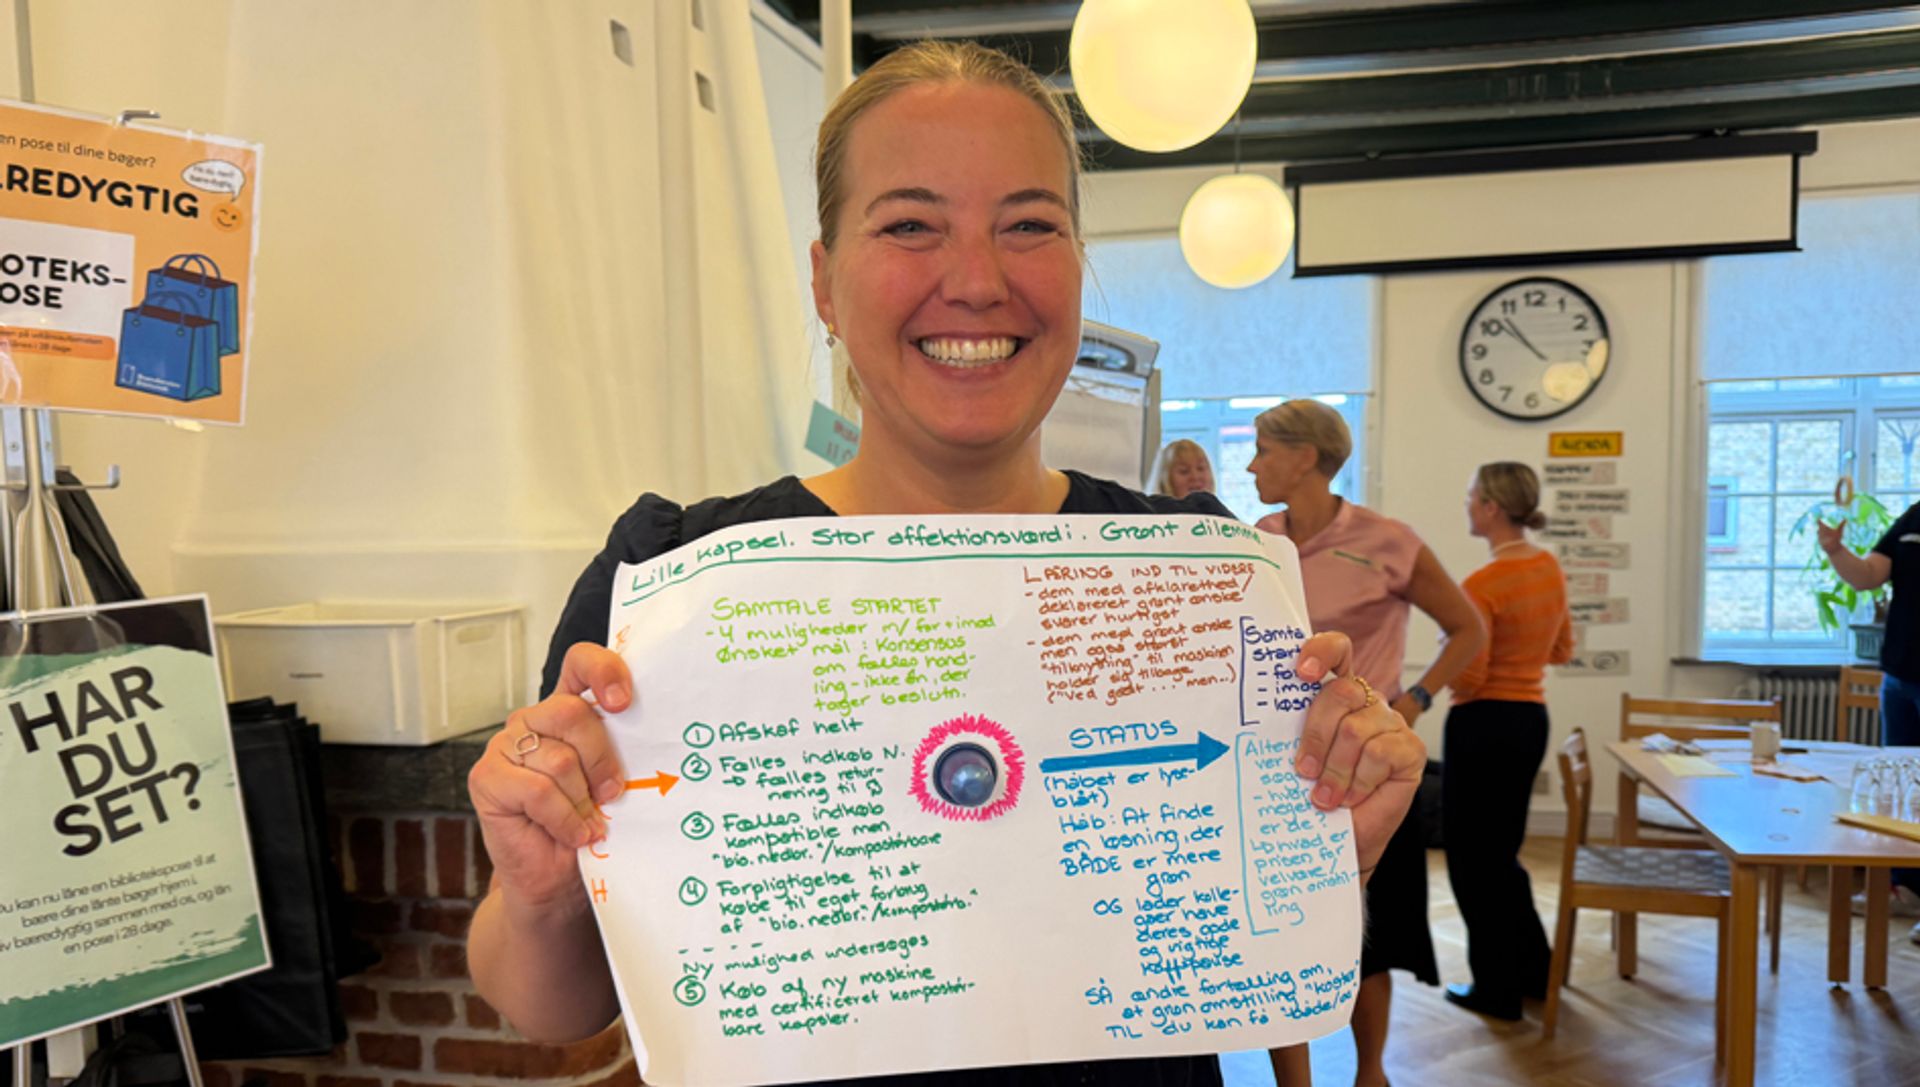 en pose til dine bøger?
REDYGTIG
OTEKS-
OSE
HAR
DU
SET?
Du kan nu låne en bibliotekspose til at
bære dine lånte bøger hjem i.
bæredygtig sammen med os, og lån
en pose i 28 dage.
Lille kapsel. Stor affektionsværdi. Grønt dilemma.
SAMTALE STARTET
- 4 muligheder m/ for + imod
Ønsket mål : Konsensus
om fælles hand-
ling - ikke én, der
tager beslutn.
① Afskaf helt
② Fælles indkøb N.
→ fælles retur-
nering til
③ Fælles indkøb
kompatible men
"bio.nedbr."/komposterbare
④ Forpligtigelse til at
købe til eget forbrug
af "bio.nedbr."/kompostérb."
- - - -
Ny mulighed undersøges
⑤ Køb af ny maskine
med certificeret kompostér-
bare kapsler.
C
H
LÆRING IND TIL VIDERE
- dem med afklarethed/
deklareret grønt ønske
svarer hurtigst
- dem med grønt ønske
men også størst
"tilknytning" til maskinen
holder sig tilbage
("Ved godt... men...)
STATUS
(håbet er lyse-
blåt)
Håb: At finde
en løsning, der
BÅDE er mere
grøn
OG lader kolle-
gaer have
deres gode
og vigtige
kaffepause
SÅ ændre fortælling om,
at grøn omstilling "koster"
TIL du kan få "både/og"
Samta
start
- fo
- imod
- løsn
Altern
ver
søg
- hvor
meget
er de?
↳ hvad er
prisen for
velvære/
grøn omstil-
ling
11 12 1
10 2
9 3
8
7 6
AGENDA